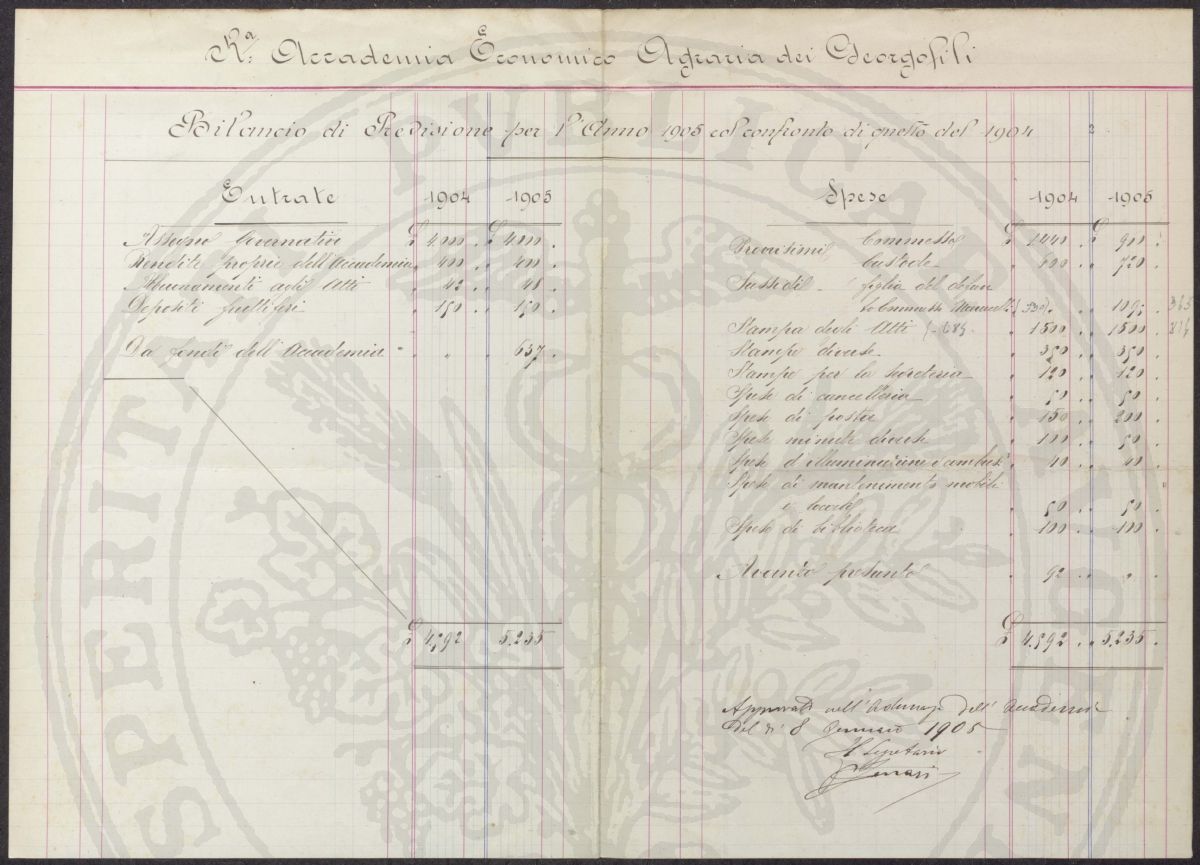 Rª Accademia Economico Agraria dei Georgofili
Bilancio di Previsione per l'Anno 1905 col confronto di quello del 1904
Entrate 1904 1905
Assegno Governativo £ 4000 . £ 4000 .
Rendite proprie dell'Accademia " 400 . " 400 .
Abbuonamenti agli Atti " 42 . " 48 .
Depositi fruttiferi " 150 . " 150 .
Da fondi dell'Accademia " " . " 637 .
£ 4,592 5.235
Spese 1904 1905
Provvisioni Commesso £ 1440 . £ 900 .
Custode " 600 . " 720 .
Sussidii figlia del defun
to Commesso (330) . 1095 365
Stampa degli Atti " 1500 . " 1500 .
Stampe diverse " 350 . " 350 .
Stampe per la Segreteria " 120 . " 120 .
Spese di cancelleria " 50 . " 50 .
Spese di posta " 150 . " 200 .
Spese minute diverse " 100 . " 50 .
Spese d'illuminazione e combust. " 40 . " 40 .
Spese di mantenimento mobili
e locali " 50 . " 50 .
Spese di biblioteca " 100 . " 100 .
Avanzo presunto " 92 . " " .
£ 4.592 . " 5.235 .
Approvato nell'Adunanza dell'Accademia
del dì 8 Gennaio 1905
Il Segretario
SPERITATI PVBLICAE AVGEN